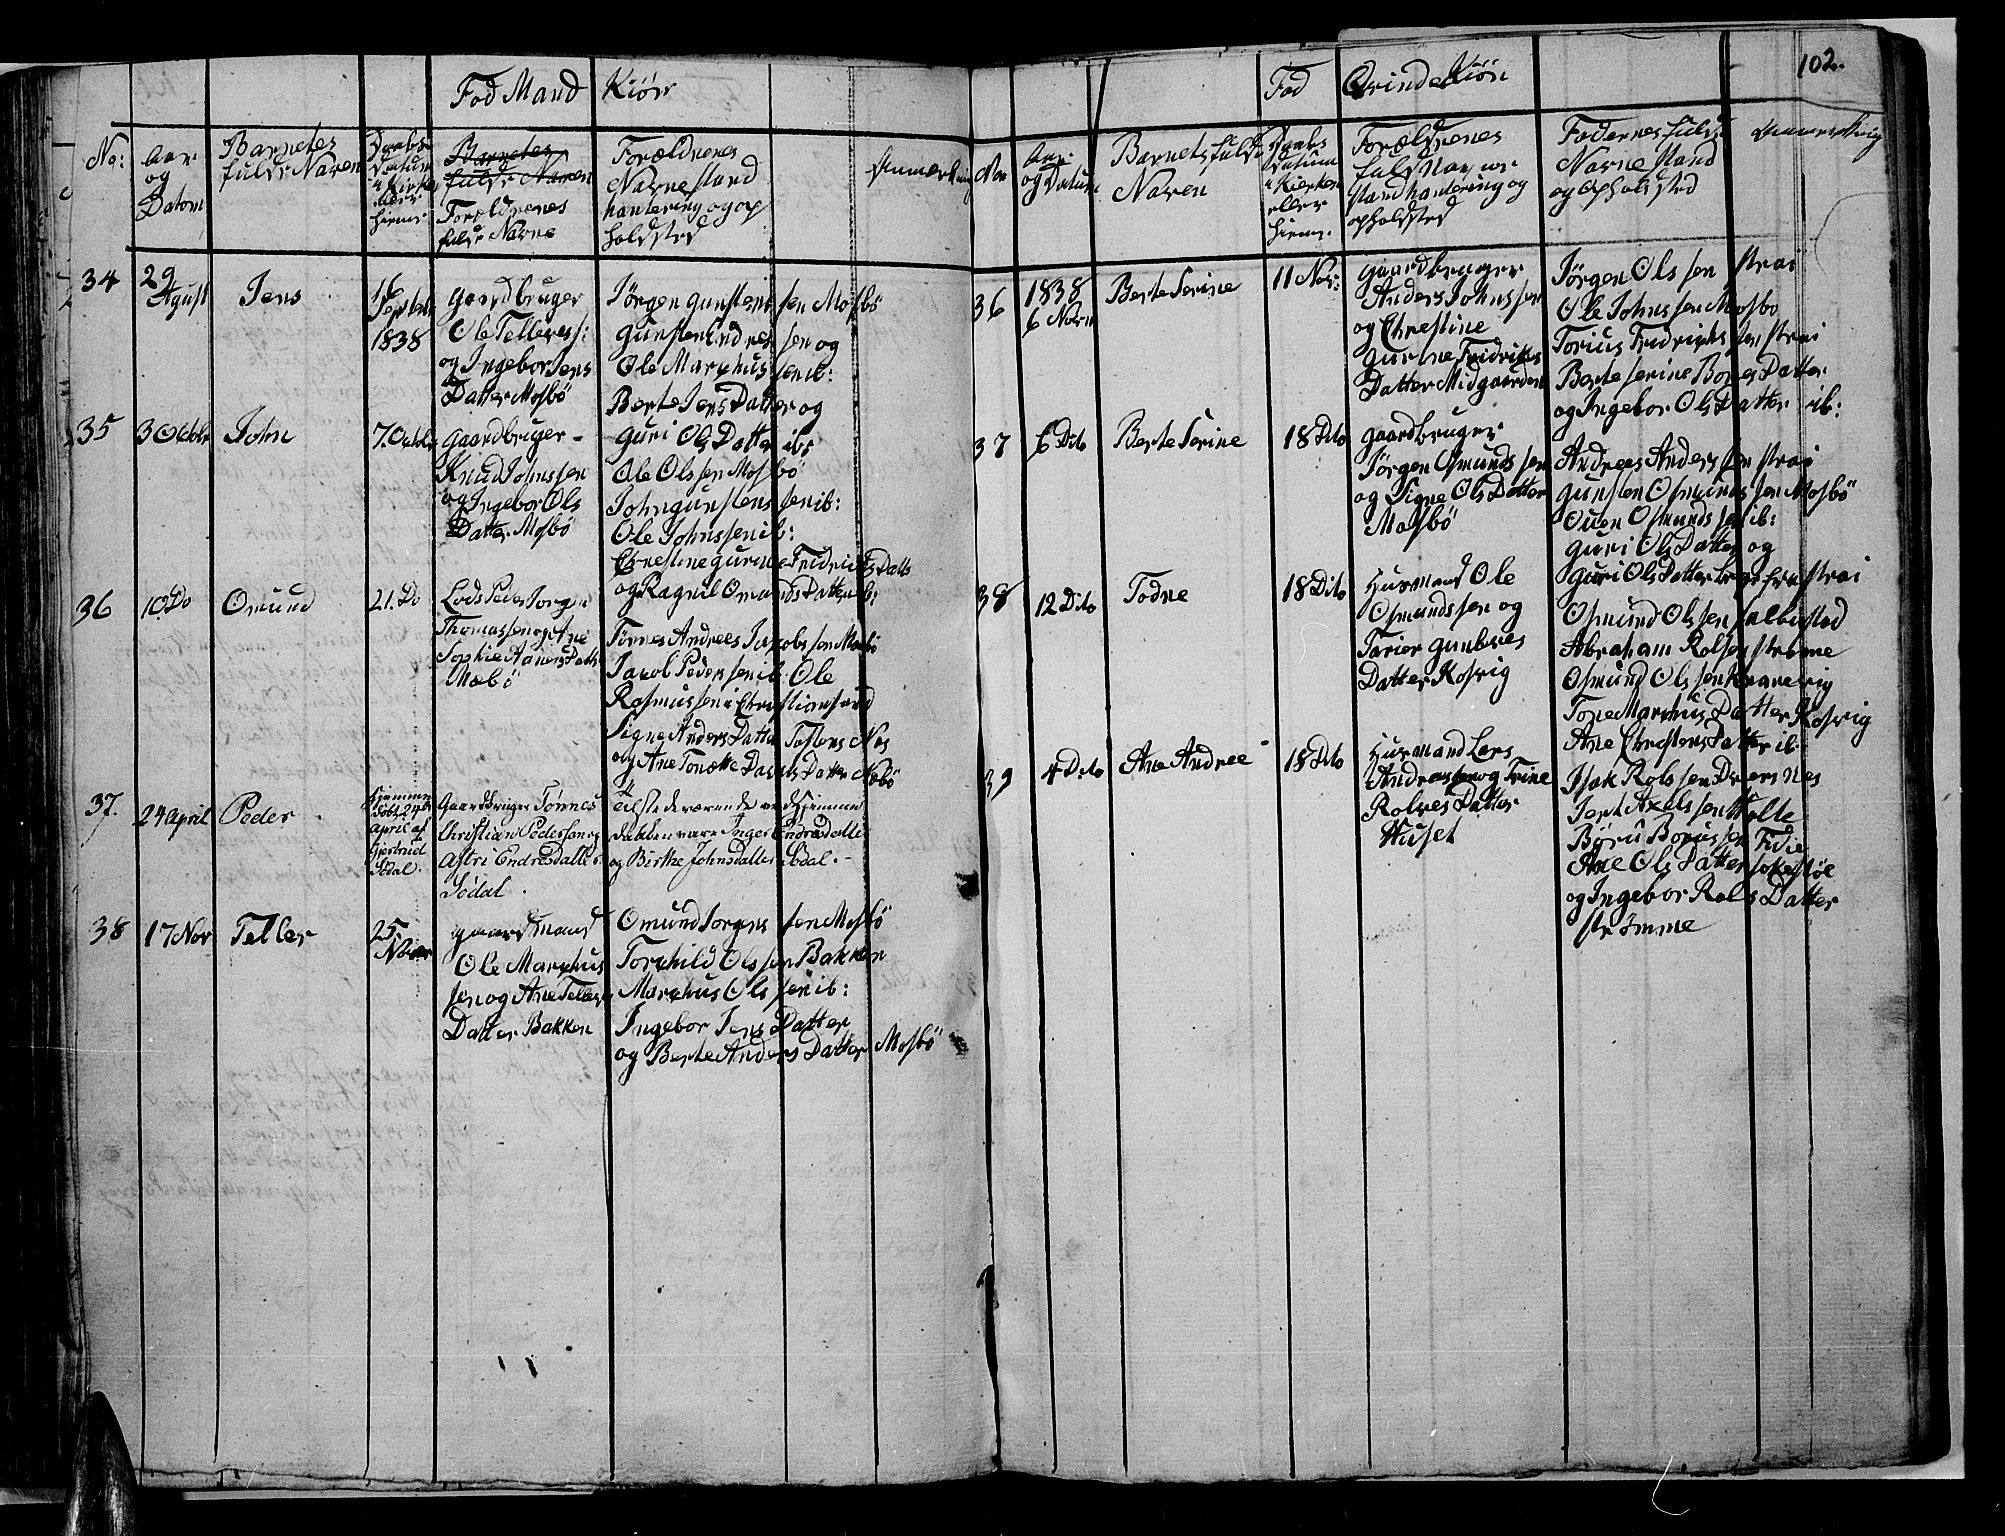 102.
Fød Mand Kiøn
No:
Aar
og
Datom
Barnetes
fulde Naven
Daabs
Datum
i Kirken
eller
hieme
Barnetes
fulde Naven
Forældrenes
fulde Navne
Forældrenes
Navne Stand
hantering og op
holdsted
Anmerkning
34
29
Agust
Jens
16
Septbr
1838
Gaardbruger
Ole Tellevs s:
og Ingebor Jens
Datter Mosbø
Jørgen Gunstens sen Mosbø
Gunsten Endres sen og
Ole Marchus sen ib:
Berte Jens Datter og
Guri Ols Datter ibs
35
3 Octobr
John
7. Octobr
Gaardbruger -
Knud Johnssen
og Ingebor Ols
Datter Mosbø
Ole Olssen Mosbø
John Gunstens sen ib:
Ole Johnssen ib:
Chrestine Gurine Fridrichs Datts
og Ragnil Omunds Datter ib:
36
10 Do
Omund
21. Do
Lods Peder Jorgen
Thomassen og Ane
Sophie Anders Datter
Mæbø
Tønnes Andrees Jacobs sen Mæbø
Jacob Peders sen ib: Ole
Rasmussen i Christiansand
Signe Anders Datter Tostens Nes
og Ane Tonette Daniels Datter Mæbø
37.
24 April
Peder
Hjemme
døbt 24de
April af
Gjertrud
Sødal.
Gaardbruger Tønnes
Christian Pedersen og
Astri Endresdatter
Sødal.
Tilstedeværende ved Hjemme
daaben vare Inger Endresdatter
og Birthe Johnsdatter Sødal. -
38
17 Nov
Tellev
25.
Nover
gaardmand
Ole Marchus
sen og Ane Tellevs
Datter Bakken
Omund Jorgens sen Mosbø
Torchild Ols sen Bakken
Marchus Ols sen ib:
Ingebor Jens Datter
og Berte Anders Datter Mosbø
Fød Qvinde Kiøn
No
Aar
og Datum
Barnets fulde
Naven
Daabs
Datum
i Kierken
eller
hieme.
Forældrenes
fulde Navne
Stand hantering og
opholdsted
Fadernes fulde
Navne Stand
og opholdsted
Anmerkning
36
1838
6 Novm
Berte Serine
11 Nov:
Gaardbruger
Anders Johnssen
og Chrestine
Gurine Fridriks
Datter Midgaarden
Jørgen Ols sen Strai
Ole Johns sen Mosbø
Torius Fridrichs sen Strai
Berte Serine Boyes Datter
og Ingebor Ols Datter ib:
37
6 Dito
Berte Serine
18 Dito
Gaardbruger
Jørgen Osmunds sen
og Signe Ols Datter
Mosbø
Andrees Anders sen Strai
Gunsten Osmunds sen Mosbø
Ouen Osmunds sen ib:
Guri Ols Datter og
Guri Ols Datter begge fra Strai
38
12 Dito
Todne
18 Dito
Husmand Ole
Osmunds sen og
Tarier Gunbvres
Datter Kosvig
Osmund Ols sen Salbusted
Abraham Rolfsen Strømme
Osmund Ols sen Knarevig
Tone Marchus Datter Kosvig
Ane Chrestens Datter ib:
39
4 Dito
Ane Andree
18 Dito
Husmand Lars
Andrassen og Trine
Rolves Datter
Huset
Isak Rolssen Dversnes
Jert Axels sen Holte
Børu Borus sen Fidie
Ane Ols Datter Sokestøe
og Ingebor Rols Datter
Strømme